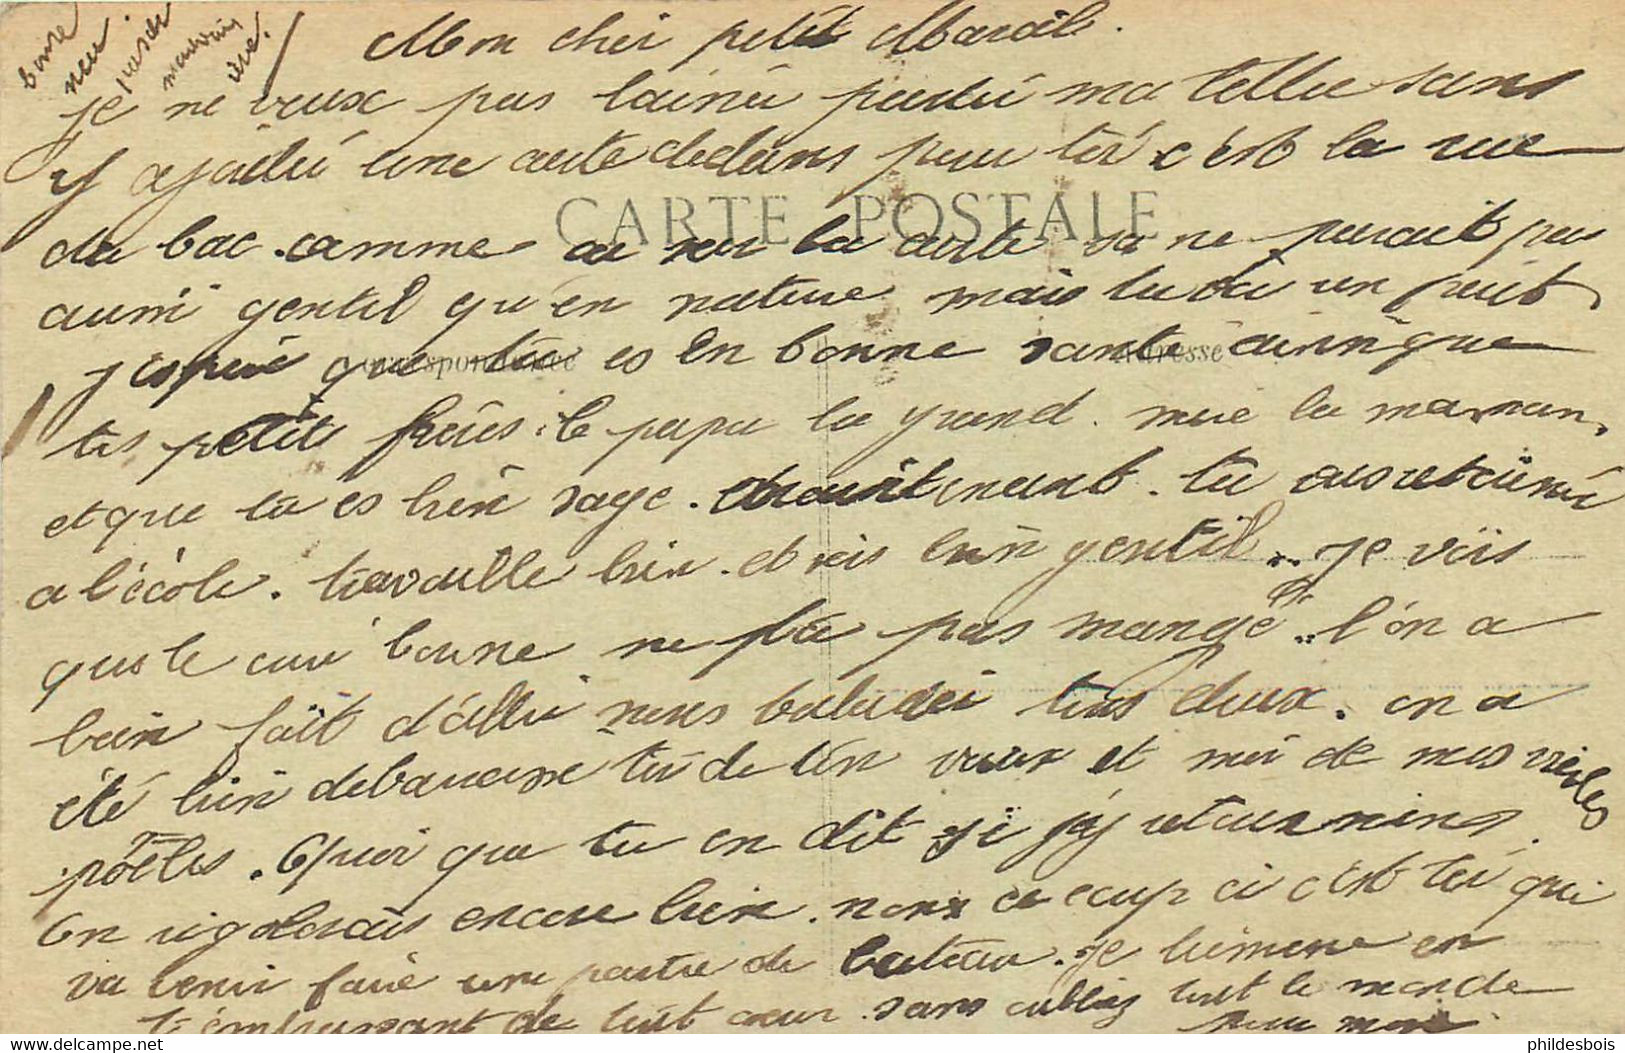 Mon cher petit Marcel.
je ne veux pas lainé partir ma lettre sans
y ajouter une carte dedans pour toi c'est la rue
du bac. comme ça sur la carte sa ne parait pas
aussi gentil qu'en nature mais tu voi un petit
j espère que tu es en bonne santé ainsi que
tes petits frères. le papa la grand. mère la maman.
et que tu es bien sage. maintenant. tu as retourné
a l'école. travaille bien. et sois bien gentil. je vois
que le curé bonne ne pas mangé. l'on a
bien fait d'aller nous balader tous deux. on a
été bien debarassé toi de ton vieux et moi de mes vieilles
poëles. Quoi que tu en dit si j'y retournions.
on rigolerais encore bien. non ce coup ci c'est toi qui
va venir faire une partie de bateau. je termine en
t'embrassant de tout cœur. sans oublier tout le monde
pour moi.
bonne
CARTE POSTALE
Correspondance
Adresse
phildesbois